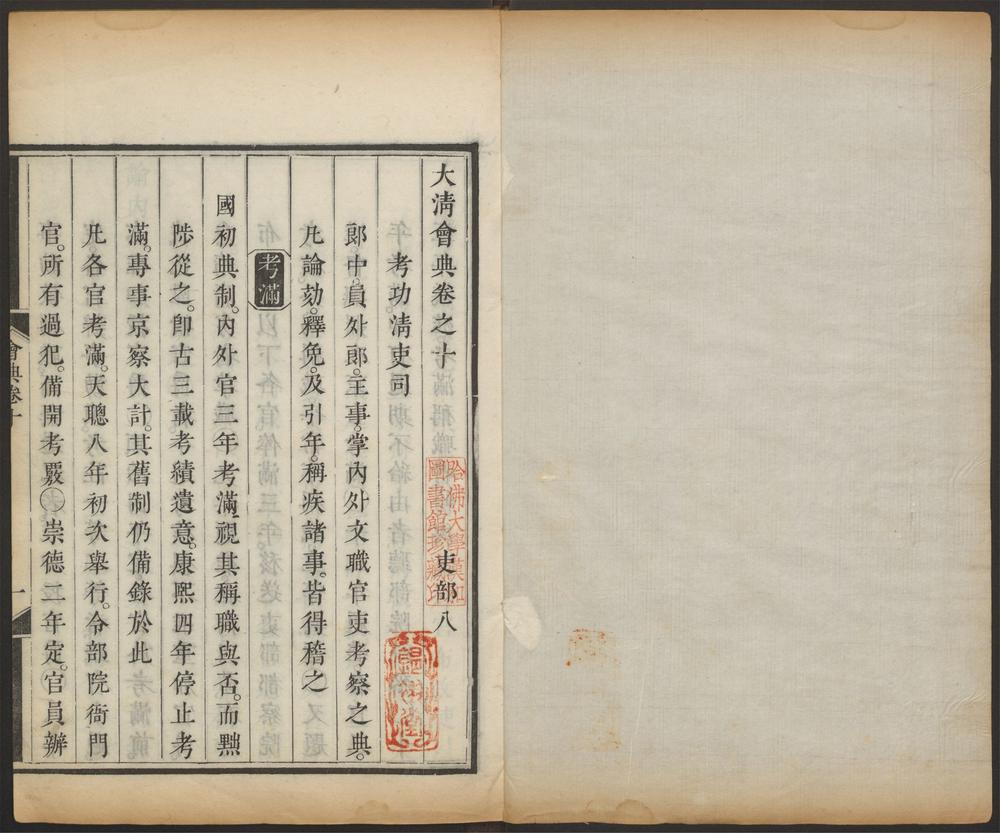 大清會典卷之十
吏部八
考功清吏司
郎中。員外郎。主事。掌內外文職官吏考察之典。
凡論劾。釋免。及引年。稱疾諸事。皆得稽之
考滿
國初典制。內外官三年考滿。視其稱職與否。而黜
陟從之。卽古三載考績遺意。康熙四年停止考
滿。專事京察大計。其舊制仍備錄於此
凡各官考滿。天聰八年初次舉行。令部院衙門
官。所有過犯。備開考覈○崇德二年定。官員辦
會典卷十
一
哈佛大學漢和
圖書館珍藏印